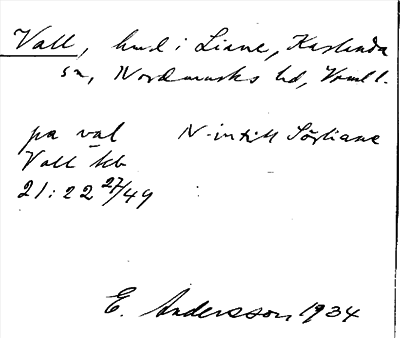 Vall, hmd i Liane, Karlanda
sn, Nordmarks hd, Vrml.
pa val N. intill Sörliane
Vall hb
21:22 27/49
E. Andersson 1934